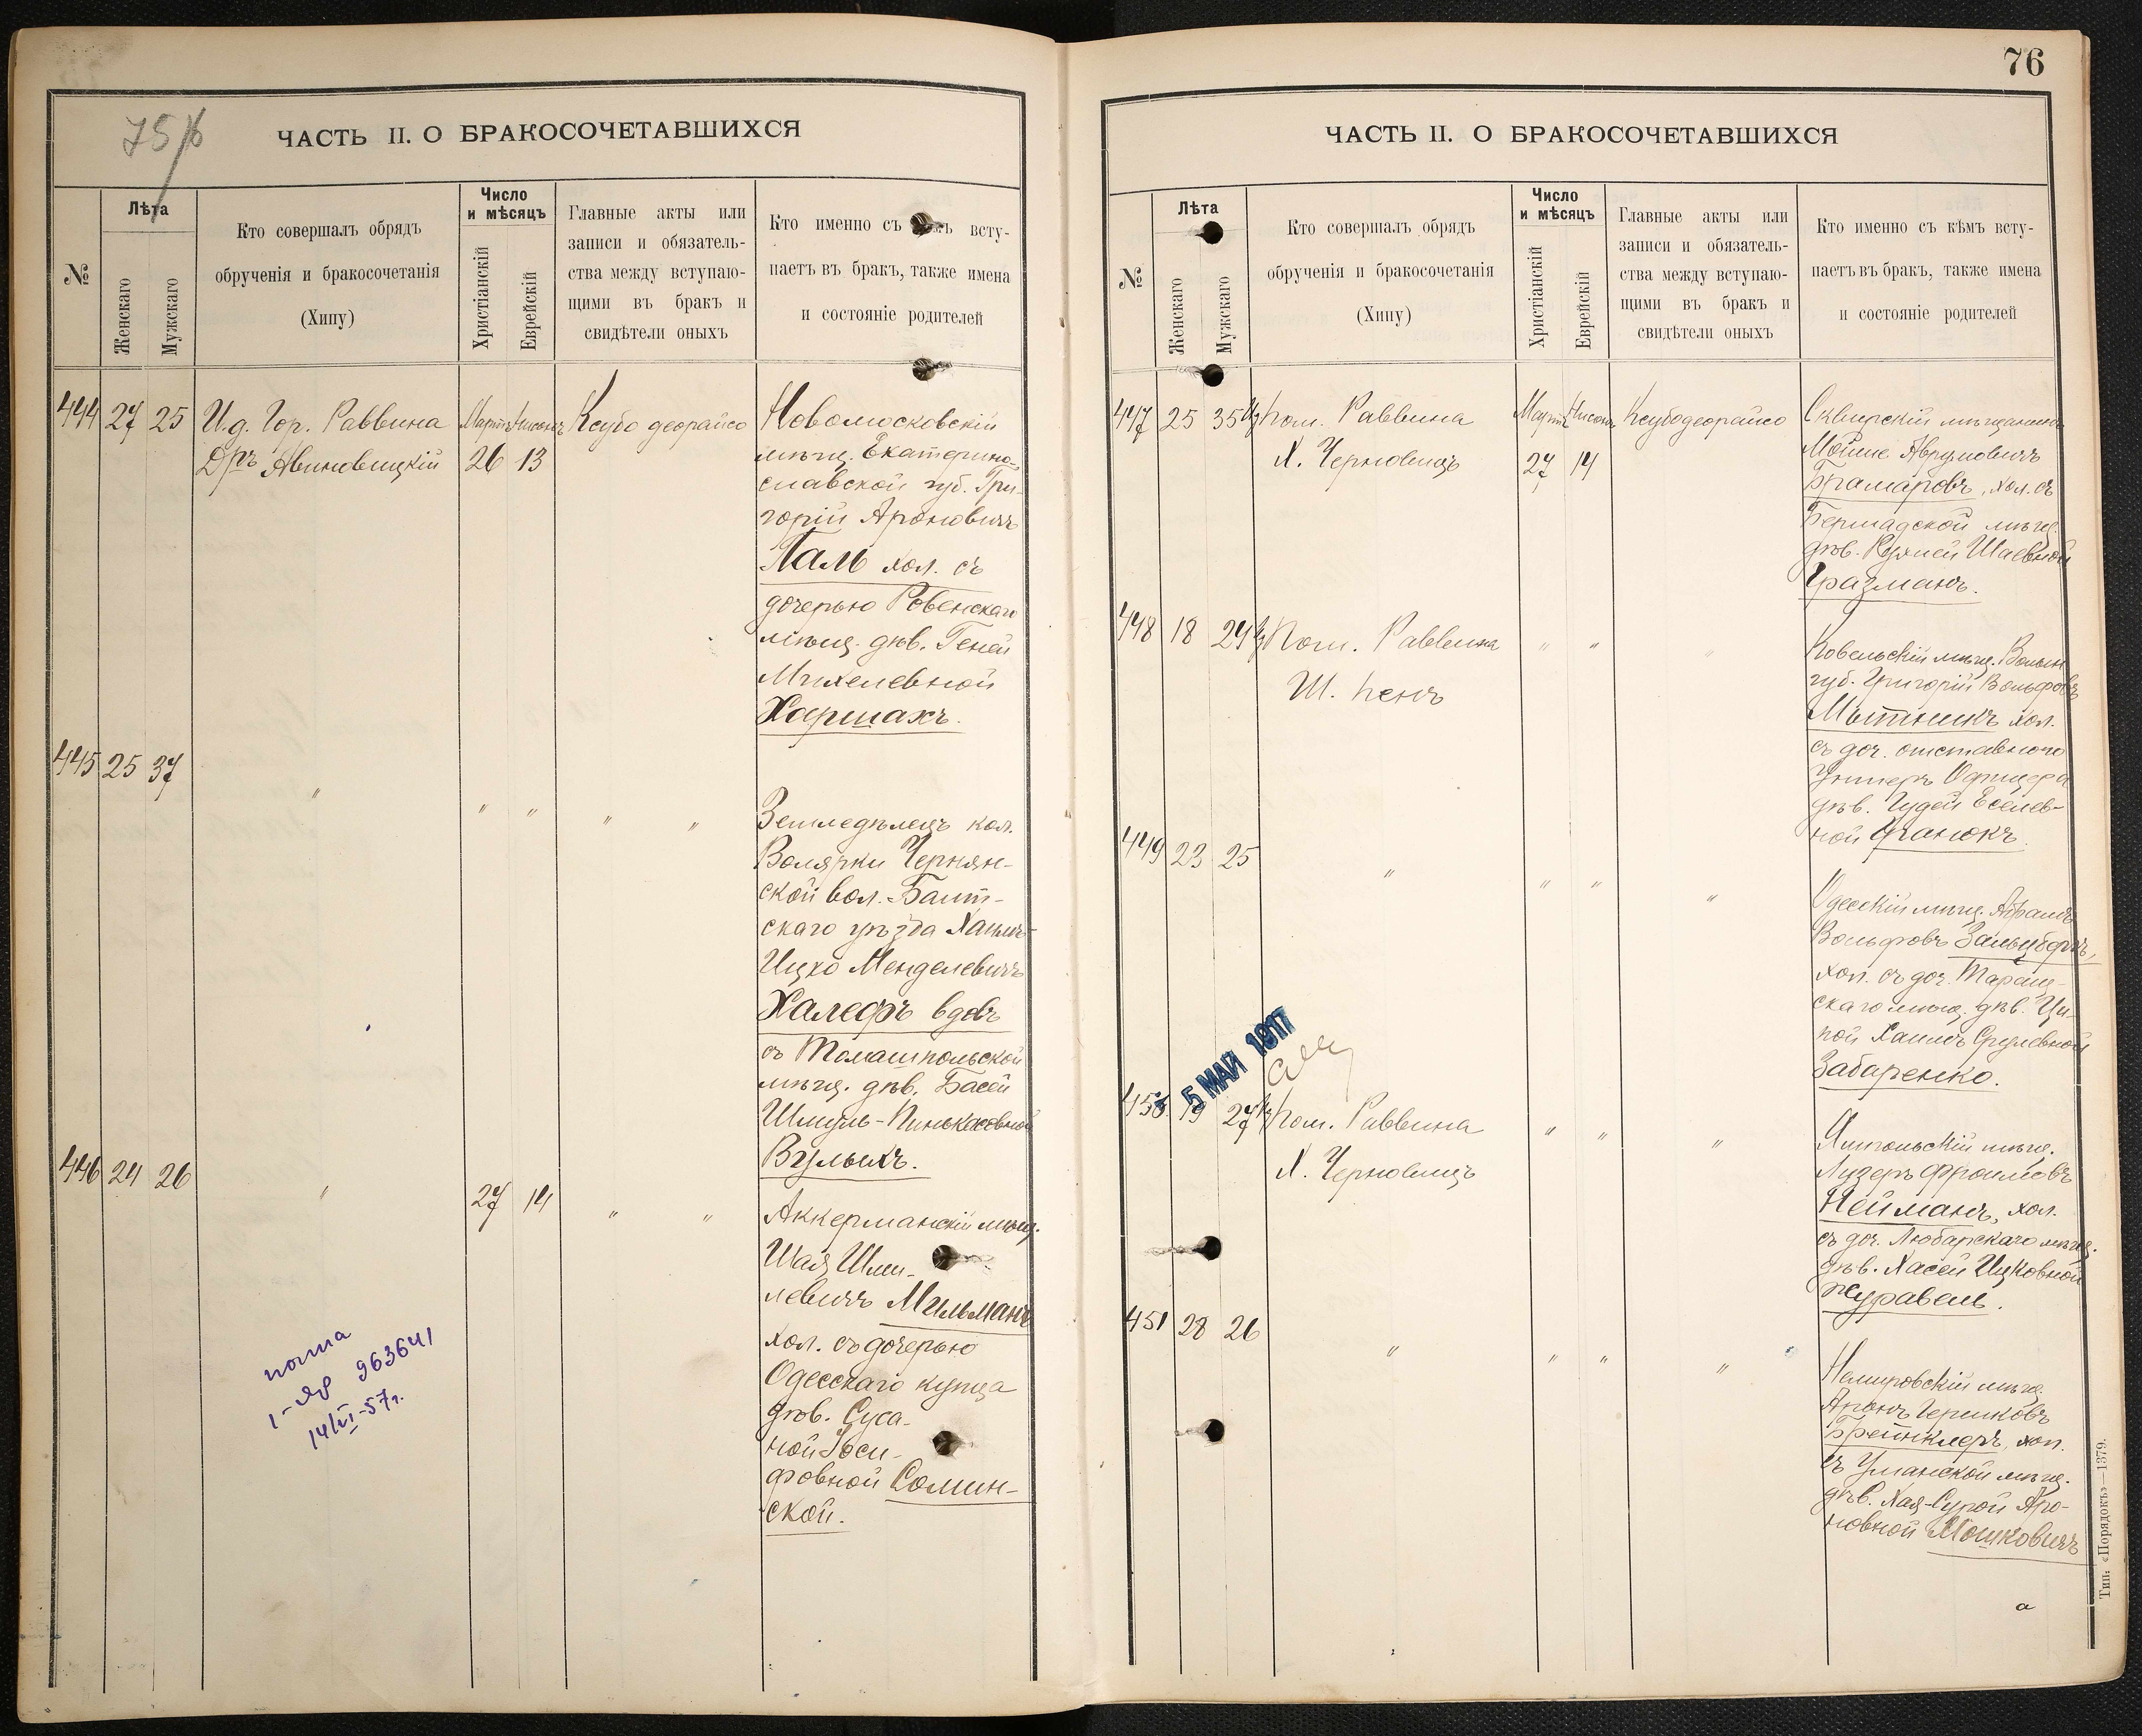 75/6
ЧАСТЬ II. О БРАКОСОЧЕТАВШИХСЯ
№
Лѣта
Женскаго
Мужскаго
Кто совершалъ обрядъ
обрученія и бракосочетанія
(Хипу)
Число
и мѣсяцъ
Христіанскій
Еврейскій
Главные акты или
записи и обязатель-
ства между вступаю-
щими въ бракъ и
свидѣтели оныхъ
Кто именно съ кѣмъ всту-
паетъ въ бракъ, также имена
и состояніе родителей
444 27 25 И.д. Гор. Раввина Мартъ Нисонъ Ксубо деорайсо
Дръ Авиновицкій 26 13
Новомосковскій
мѣщ. Екатерино-
славской губ. Гри-
горій Ароновичъ
Галь хол. съ
дочерью Ровенскаго
мѣщ. дѣв. Геней
Михелевной
Харшахъ.
445 25 37 " " " " "
Земледѣлецъ кол.
Волярки Чернян-
ской вол. Балт-
скаго уѣзда Хаимъ-
Ицко Менделевичъ
Халефъ вдовъ
съ Томашпольской
мѣщ. дѣв. Басей
Шмуль-Пинькасовной
Вульихъ.
446 24 26 " 27 14 " "
Аккерманскій мѣщ.
Шая Шми-
левичъ Мильманъ
хол. съ дочерью
Одесскаго купца
дѣв. Суса-
ной Іоси-
фовной Солин-
ской.
963641
14/VI-57г.
76
ЧАСТЬ II. О БРАКОСОЧЕТАВШИХСЯ
№
Лѣта
Женскаго
Мужскаго
Кто совершалъ обрядъ
обрученія и бракосочетанія
(Хипу)
Число
и мѣсяцъ
Христіанскій
Еврейскій
Главные акты или
записи и обязатель-
ства между вступаю-
щими въ бракъ и
свидѣтели оныхъ
Кто именно съ кѣмъ всту-
паетъ въ бракъ, также имена
и состояніе родителей
447 25 35½ Пом. Раввина Мартъ Нисонъ Ксубо деорайсо
Х. Черновицъ 27 14
Сквирскій мѣщанинъ
Мойше Аврумовичъ
Брамаровъ, хол. съ
Бершадской мѣщ.
дѣв. Рухлей Шаевной
Гразманъ.
448 18 24½ Пом. Раввина " " "
Ш. Пенъ
Ковельскій мѣщ. Волын.
губ. Григорій Вольфовъ
Мытникъ хол.
съ доч. отставного
Унтеръ Офицера
дѣв. Гудей Еселев-
ной Франокъ.
449 23 25 " " " "
Одесскій мѣщ. Абрамъ
Вольфовъ Зальцбергъ,
хол. съ доч. Таращ-
скаго мѣщ. дѣв. Ци-
пой Хаимъ Срулевной
Забаренко.
5 МАЙ 1917
450 19 27½ Пом. Раввина " " "
Х. Черновицъ
Ямпольскій мѣщ.
Лузеръ Фроимовъ
Нейманъ, хол.
съ доч. Любарскаго мѣщ.
дѣв. Хасей Ицковной
Журавель.
451 28 26 " " " "
Немировскій мѣщ.
Аронъ Гершковъ
Брейнклеръ, хол.
съ Уманской мѣщ.
дѣв. Хая-Сурой Аро-
новной Мошковичъ
а
Тип. «Порядокъ»—1379.